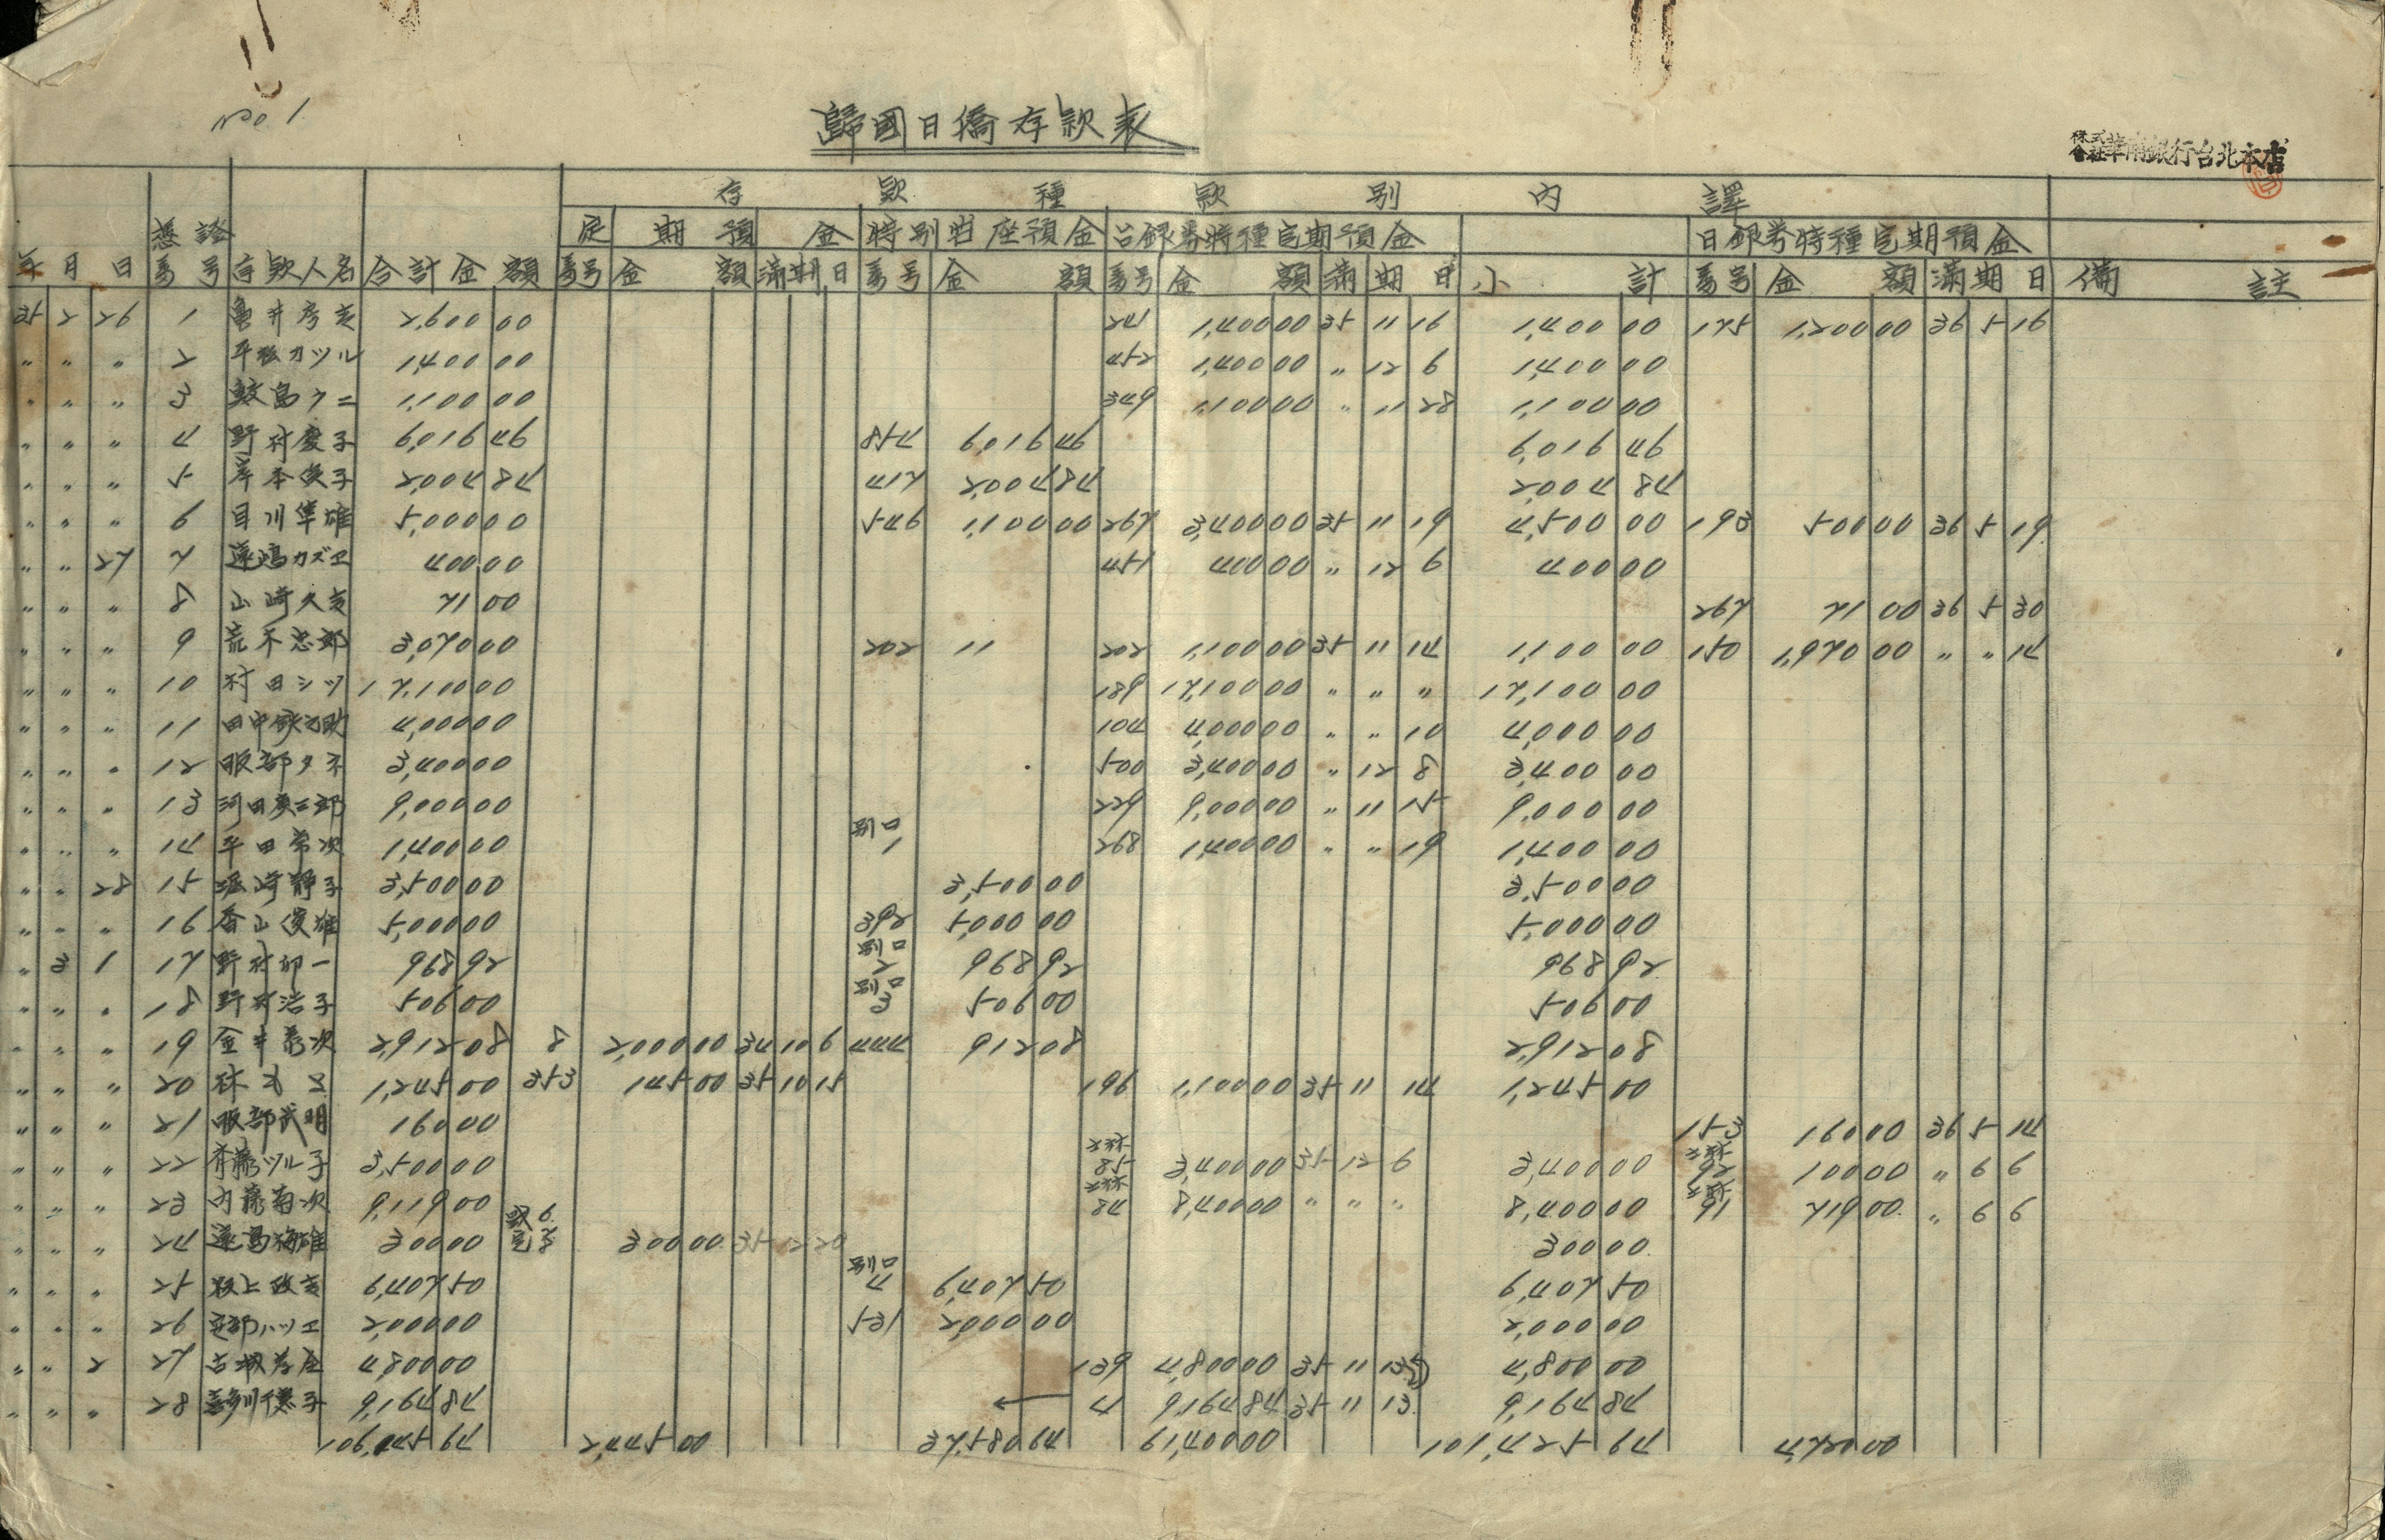 No. 1.
歸國日僑存款表
株式會社華南銀行台北本店
存款種款別內譯
定期預金 特別當座預金 台銀券特種定期預金 日銀券特種定期預金
年 月 日 憑證番号 存款人名 合計金額 番号 金額 滿期日 番号 金額 番号 金額 滿期日 小計 番号 金額 滿期日 備註
35 2 26 1 2,600 00 241 1,400 00 35 11 16 1,400 00 175 1,200 00 36 5 16
〃 〃 〃 2 平松カツル 1,400 00 452 1,400 00 〃 12 6 1,400 00
〃 〃 〃 3 鮫島クニ 1,100 00 349 1,100 00 〃 11 28 1,100 00
〃 〃 〃 4 野村慶子 6,016 46 854 6,016 46 6,016 46
〃 〃 〃 5 岸本俊子 2,004 84 417 2,004 84 2,004 84
〃 〃 〃 6 目川隼雄 5,000 00 546 1,100 00 267 3,400 00 35 11 19 4,500 00 193 500 00 36 5 19
〃 〃 27 7 遠嶋カズヱ 400 00 451 400 00 〃 12 6 400 00
〃 〃 〃 8 山崎久吉 71 00 267 71 00 36 5 30
〃 〃 〃 9 荒木忠郎 3,070 00 202 11 202 1,100 00 35 11 14 1,100 00 150 1,970 00 〃 〃 14
〃 〃 〃 10 村田シツ 17,100 00 189 17,100 00 〃 〃 〃 17,100 00
〃 〃 〃 11 田中鉄之助 4,000 00 104 4,000 00 〃 〃 10 4,000 00
〃 〃 〃 12 服部タネ 3,400 00 500 3,400 00 〃 12 8 3,400 00
〃 〃 〃 13 9,000 00 229 9,000 00 〃 11 15 9,000 00
〃 〃 〃 14 平田常次 1,400 00 別口 1 268 1,400 00 〃 〃 19 1,400 00
〃 〃 28 15 堀崎静子 3,500 00 3,500 00 3,500 00
〃 〃 〃 16 香山俊雄 5,000 00 392 5,000 00 5,000 00
〃 3 1 17 野村卯一 968 92 別口 2 968 92 968 92
〃 〃 〃 18 野村浩子 506 00 別口 3 506 00 506 00
〃 〃 〃 19 金井義次 2,912 08 8 2,000 00 34 10 6 444 912 08 2,912 08
〃 〃 〃 20 1,245 00 353 145 00 35 10 15 196 1,100 00 35 11 14 1,245 00
〃 〃 〃 21 服部武明 160 00 153 160 00 36 5 14
〃 〃 〃 22 斉藤ツル子 3,500 00 85 3,400 00 35 12 6 3,400 00 92 100 00 〃 6 6
〃 〃 〃 23 内藤菊次 9,119 00 84 8,400 00 〃 〃 〃 8,400 00 91 719 00 〃 6 6
〃 〃 〃 24 遠島梅雄 300 00 300 00 35 12 20 300 00
〃 〃 〃 25 坂上政吉 6,407 50 別口 4 6,407 50 6,407 50
〃 〃 〃 26 安部ハツエ 2,000 00 531 2,000 00 2,000 00
〃 〃 2 27 4,800 00 139 4,800 00 35 11 13 4,800 00
〃 〃 〃 28 9,164 84 ← 4 9,164 84 35 11 13 9,164 84
106,145 64 2,445 00 37,580 64 61,400 00 101,425 64 4,720 00